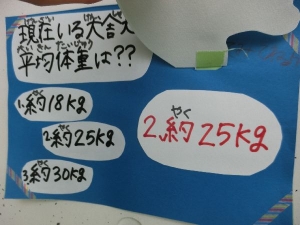 現在いる犬舎犬
平均体重は??
1.約18kg
2.約25kg
3.約30kg
2.約25kg